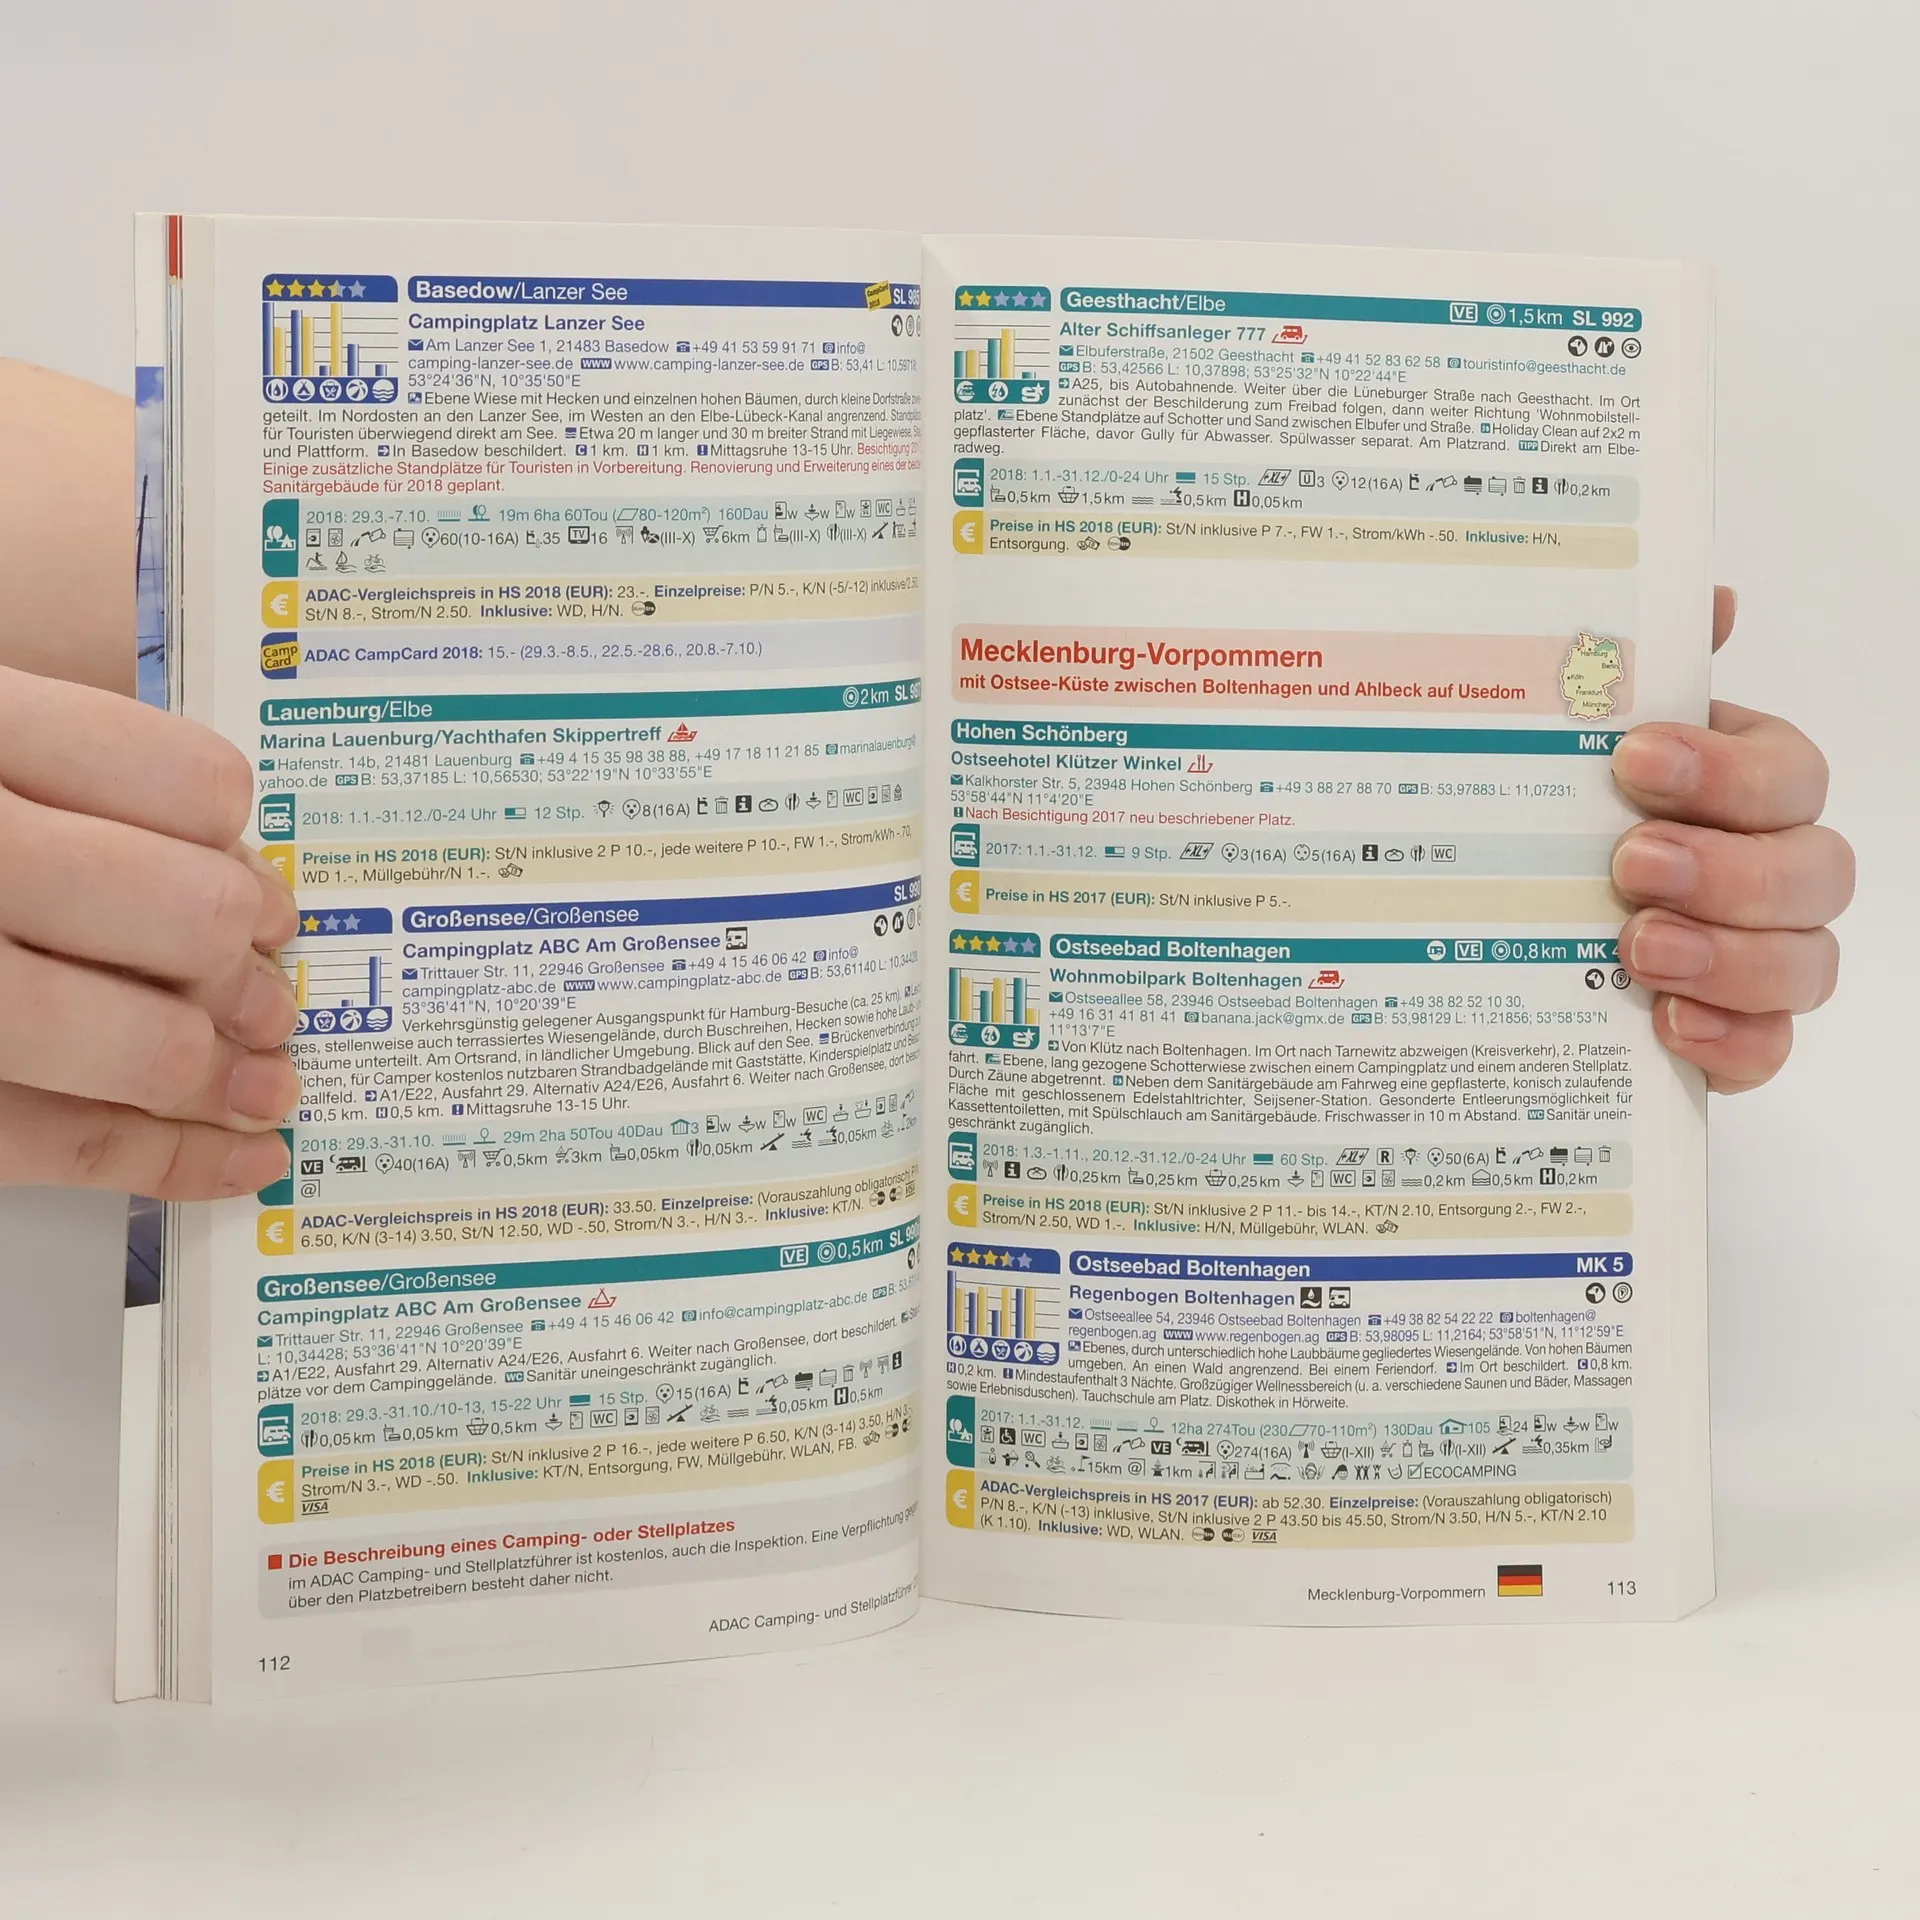 Basedow/Lanzer See
CampCard 2018 SL 985
Campingplatz Lanzer See
Am Lanzer See 1, 21483 Basedow +49 41 53 59 91 71 info@
camping-lanzer-see.de www www.camping-lanzer-see.de GPS B: 53,41 L: 10,59718
53°24'36"N, 10°35'50"E
Ebene Wiese mit Hecken und einzelnen hohen Bäumen, durch kleine Dorfstraße
geteilt. Im Nordosten an den Lanzer See, im Westen an den Elbe-Lübeck-Kanal angrenzend.
für Touristen überwiegend direkt am See. Etwa 20 m langer und 30 m breiter Strand mit Liegewiese,
und Plattform. In Basedow beschildert. C 1 km. H 1 km. ! Mittagsruhe 13-15 Uhr. Besichtigung
Einige zusätzliche Standplätze für Touristen in Vorbereitung. Renovierung und Erweiterung eines der
Sanitärgebäude für 2018 geplant.
2018: 29.3.-7.10. 19m 6ha 60Tou (80-120m²) 160Dau w w w WC
60(10-16A) 35 TV 16 (III-X) 6km (III-X) (III-X)
€ ADAC-Vergleichspreis in HS 2018 (EUR): 23.-. Einzelpreise: P/N 5.-, K/N (-5/-12) inklusive/2.50,
St/N 8.-, Strom/N 2.50. Inklusive: WD, H/N.
Camp Card ADAC CampCard 2018: 15.- (29.3.-8.5., 22.5.-28.6., 20.8.-7.10.)
Lauenburg/Elbe 2 km SL 987
Marina Lauenburg/Yachthafen Skippertreff
Hafenstr. 14b, 21481 Lauenburg +49 4 15 35 98 38 88, +49 17 18 11 21 85 marinalauenburg@
yahoo.de GPS B: 53,37185 L: 10,56530; 53°22'19"N 10°33'55"E
2018: 1.1.-31.12./0-24 Uhr 12 Stp. 8(16A) WC
€ Preise in HS 2018 (EUR): St/N inklusive 2 P 10.-, jede weitere P 10.-, FW 1.-, Strom/kWh -.70,
WD 1.-, Müllgebühr/N 1.-.
Großensee/Großensee SL 990
Campingplatz ABC Am Großensee
Trittauer Str. 11, 22946 Großensee +49 4 15 46 06 42 info@
campingplatz-abc.de www www.campingplatz-abc.de GPS B: 53,61140 L: 10,34428
53°36'41"N, 10°20'39"E
Verkehrsgünstig gelegener Ausgangspunkt für Hamburg-Besuche (ca. 25 km).
liges, stellenweise auch terrassiertes Wiesengelände, durch Buschreihen, Hecken sowie hohe Laub-
lbäume unterteilt. Am Ortsrand, in ländlicher Umgebung. Blick auf den See. Brückenverbindung
lichen, für Camper kostenlos nutzbaren Strandbadgelände mit Gaststätte, Kinderspielplatz und
ballfeld. A1/E22, Ausfahrt 29. Alternativ A24/E26, Ausfahrt 6. Weiter nach Großensee, dort
C 0,5 km. H 0,5 km. ! Mittagsruhe 13-15 Uhr.
2018: 29.3.-31.10. 29m 2ha 50Tou 40Dau 3 w w w WC
VE 40(16A) 0,5km 3km 0,05km 0,05km 0,05km 2km
@
€ ADAC-Vergleichspreis in HS 2018 (EUR): 33.50. Einzelpreise: (Vorauszahlung obligatorisch) P/N
6.50, K/N (3-14) 3.50, St/N 12.50, WD -.50, Strom/N 3.-, H/N 3.-. Inklusive: KT/N. VISA
Großensee/Großensee VE 0,5 km SL 990
Campingplatz ABC Am Großensee
Trittauer Str. 11, 22946 Großensee +49 4 15 46 06 42 info@campingplatz-abc.de GPS B:
L: 10,34428; 53°36'41"N 10°20'39"E
A1/E22, Ausfahrt 29. Alternativ A24/E26, Ausfahrt 6. Weiter nach Großensee, dort beschildert.
plätze vor dem Campinggelände. WC Sanitär uneingeschränkt zugänglich.
2018: 29.3.-31.10./10-13, 15-22 Uhr 15 Stp. 15(16A)
0,05km 0,05km 0,5km WC 0,05km H 0,5km
€ Preise in HS 2018 (EUR): St/N inklusive 2 P 16.-, jede weitere P 6.50, K/N (3-14) 3.50, H/N 3.-,
Strom/N 3.-, WD -.50. Inklusive: KT/N, Entsorgung, FW, Müllgebühr, WLAN, FB.
VISA
Die Beschreibung eines Camping- oder Stellplatzes
im ADAC Camping- und Stellplatzführer ist kostenlos, auch die Inspektion. Eine Verpflichtung
über den Platzbetreibern besteht daher nicht.
ADAC Camping- und Stellplatzführer
112
Geesthacht/Elbe VE 1,5 km SL 992
Alter Schiffsanleger 777
Elbuferstraße, 21502 Geesthacht +49 41 52 83 62 58 touristinfo@geesthacht.de
GPS B: 53,42566 L: 10,37898; 53°25'32"N 10°22'44"E
A25, bis Autobahnende. Weiter über die Lüneburger Straße nach Geesthacht. Im Ort
zunächst der Beschilderung zum Freibad folgen, dann weiter Richtung 'Wohnmobilstell-
platz'. Ebene Standplätze auf Schotter und Sand zwischen Elbufer und Straße. Holiday Clean auf 2x2 m
gepflasterter Fläche, davor Gully für Abwasser. Spülwasser separat. Am Platzrand. TIPP Direkt am Elbe-
radweg.
2018: 1.1.-31.12./0-24 Uhr 15 Stp. XL Ü 3 12(16A) 0,2km
0,5km 1,5km 0,5km H 0,05km
€ Preise in HS 2018 (EUR): St/N inklusive P 7.-, FW 1.-, Strom/kWh -.50. Inklusive: H/N,
Entsorgung.
Mecklenburg-Vorpommern
mit Ostsee-Küste zwischen Boltenhagen und Ahlbeck auf Usedom
Hamburg
Berlin
Köln
Frankfurt
München
Hohen Schönberg MK
Ostseehotel Klützer Winkel
Kalkhorster Str. 5, 23948 Hohen Schönberg +49 3 88 27 88 70 GPS B: 53,97883 L: 11,07231;
53°58'44"N 11°4'20"E
! Nach Besichtigung 2017 neu beschriebener Platz.
2017: 1.1.-31.12. 9 Stp. XL 3(16A) 5(16A) WC
€ Preise in HS 2017 (EUR): St/N inklusive P 5.-.
Ostseebad Boltenhagen VE 0,8 km MK 4
Wohnmobilpark Boltenhagen
Ostseeallee 58, 23946 Ostseebad Boltenhagen +49 38 82 52 10 30,
+49 16 31 41 81 41 banana.jack@gmx.de GPS B: 53,98129 L: 11,21856; 53°58'53"N
11°13'7"E
Von Klütz nach Boltenhagen. Im Ort nach Tarnewitz abzweigen (Kreisverkehr), 2. Platzein-
fahrt. Ebene, lang gezogene Schotterwiese zwischen einem Campingplatz und einem anderen Stellplatz.
Durch Zäune abgetrennt. Neben dem Sanitärgebäude am Fahrweg eine gepflasterte, konisch zulaufende
Fläche mit geschlossenem Edelstahltrichter, Seijsener-Station. Gesonderte Entleerungsmöglichkeit für
Kassettentoiletten, mit Spülschlauch am Sanitärgebäude. Frischwasser in 10 m Abstand. WC Sanitär unein-
geschränkt zugänglich.
2018: 1.3.-1.11., 20.12.-31.12./0-24 Uhr 60 Stp. XL R 50(6A)
0,25km 0,25km 0,25km WC 0,2km 0,5km H 0,2km
€ Preise in HS 2018 (EUR): St/N inklusive 2 P 11.- bis 14.-, KT/N 2.10, Entsorgung 2.-, FW 2.-,
Strom/N 2.50, WD 1.-. Inklusive: H/N, Müllgebühr, WLAN.
Ostseebad Boltenhagen MK 5
Regenbogen Boltenhagen
Ostseeallee 54, 23946 Ostseebad Boltenhagen +49 38 82 54 22 22 boltenhagen@
regenbogen.ag www www.regenbogen.ag GPS B: 53,98095 L: 11,2164; 53°58'51"N, 11°12'59"E
Ebenes, durch unterschiedlich hohe Laubbäume gegliedertes Wiesengelände. Von hohen Bäumen
umgeben. An einen Wald angrenzend. Bei einem Feriendorf. Im Ort beschildert. C 0,8 km.
H 0,2 km. ! Mindestaufenthalt 3 Nächte. Großzügiger Wellnessbereich (u. a. verschiedene Saunen und Bäder, Massagen
sowie Erlebnisduschen). Tauchschule am Platz. Diskothek in Hörweite.
2017: 1.1.-31.12. 12ha 274Tou (230 70-110m²) 130Dau 105 24 w w w
WC VE 274(16A) (I-XII) (I-XII) 0,35km
15km @ 1km ECOCAMPING
€ ADAC-Vergleichspreis in HS 2017 (EUR): ab 52.30. Einzelpreise: (Vorauszahlung obligatorisch)
P/N 8.-, K/N (-13) inklusive, St/N inklusive 2 P 43.50 bis 45.50, Strom/N 3.50, H/N 5.-, KT/N 2.10
(K 1.10). Inklusive: WD, WLAN. VISA
Mecklenburg-Vorpommern 113